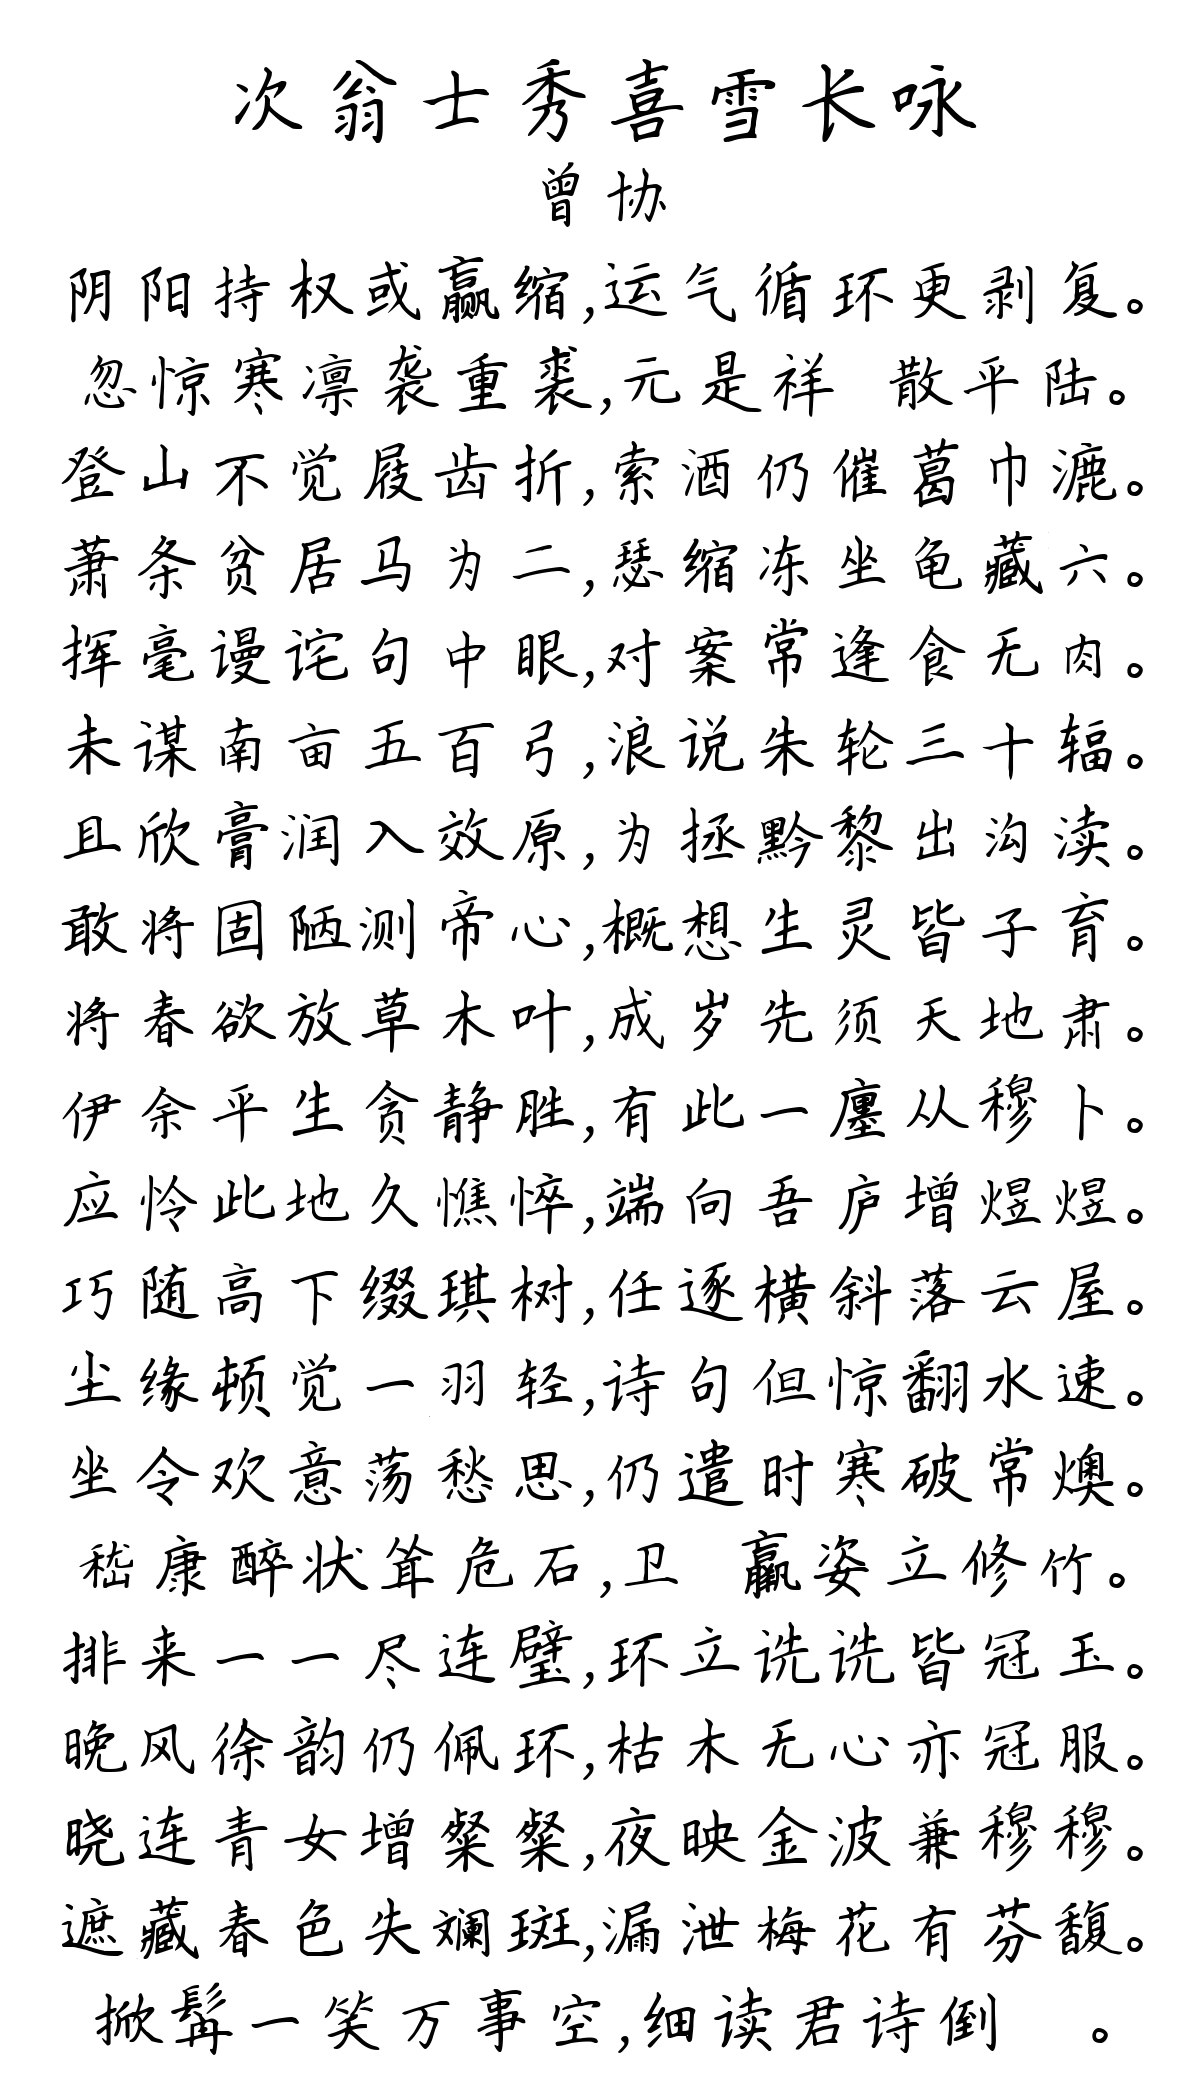 次翁士秀喜雪长咏
曾协
阴阳持权或赢缩,运气循环更剥复。
忽惊寒凛袭重裘,元是祥 散平陆。
登山不觉屐齿折,索酒仍催葛巾漉。
萧条贫居马为二,瑟缩冻坐龟藏六。
挥毫谩诧句中眼,对案常逢食无肉。
未谋南亩五百弓,浪说朱轮三十辐。
且欣膏润入效原,为拯黔黎出沟渎。
敢将固陋测帝心,概想生灵皆子育。
将春欲放草木叶,成岁先须天地肃。
伊余平生贪静胜,有此一廛从穆卜。
应怜此地久憔悴,端向吾庐增煜煜。
巧随高下缀琪树,任逐横斜落云屋。
尘缘顿觉一羽轻,诗句但惊翻水速。
坐令欢意荡愁思,仍遣时寒破常燠。
嵇康醉状耸危石,卫 羸姿立修竹。
排来一一尽连璧,环立诜诜皆冠玉。
晚风徐韵仍佩环,枯木无心亦冠服。
晓连青女增粲粲,夜映金波兼穆穆。
遮藏春色失斓斑,漏泄梅花有芬馥。
掀髯一笑万事空,细读君诗倒 。